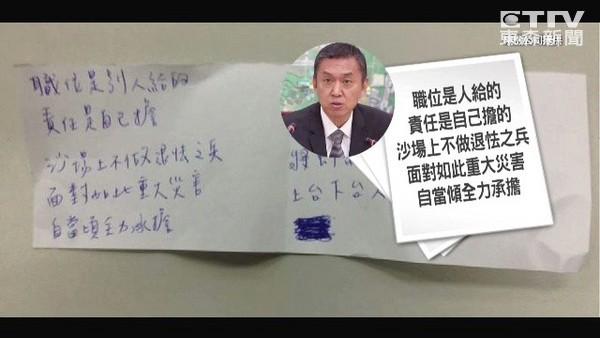 ETTV
東森新聞
職位是別人給的
責任是自己擔
沙場上不做退怯之兵
面對如此重大災害
自當頃全力承擔
上台下台人
職位是人給的
責任是自己擔的
沙場上不做退怯之兵
面對如此重大災害
自當傾全力承擔